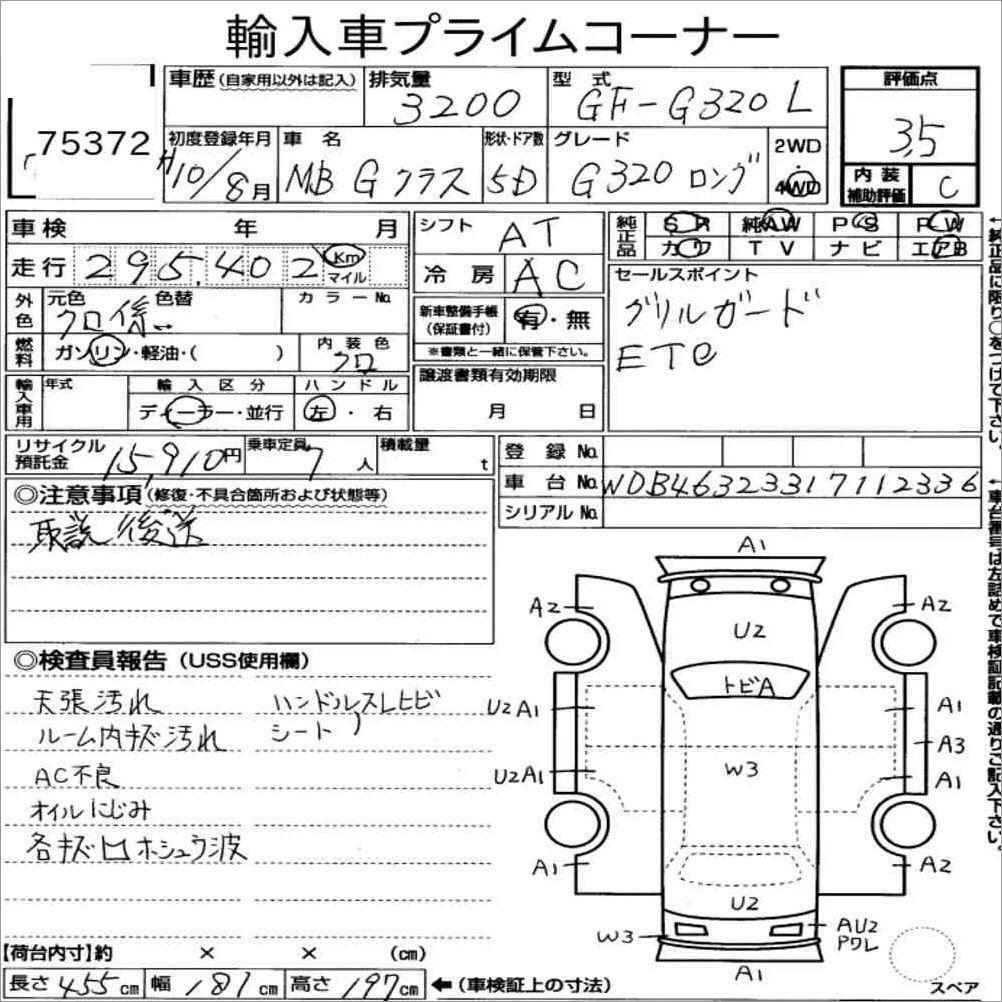 輸入車プライムコーナー
75372
車歴(自家用以外は記入) 排気量 3200 型式 GF-G320L 評価点 3.5
初度登録年月 H10/8月 車名 MB Gクラス 形状・ドア数 5D グレード G320 ロング 2WD・4WD 内装補助評価 C
車検 年 月 シフト AT 純正品 SR 純AW PS PW
カワ TV ナビ エアB
走行 295,402 Km マイル 冷房 AC セールスポイント
外色 元色 クロ 色替 カラーNo. 新車整備手帳(保証書付) 有・無 グリルガード
燃料 ガソリン・軽油・( ) 内装色 クロ ※書類と一緒に保管下さい。 ETC
輸入車用 年式 輸入区分 ハンドル 譲渡書類有効期限
ディーラー・並行 左・右 月 日
リサイクル預託金 15,910円 乗車定員 7人 積載量 t 登録No.
車台No. WDB46323317112336
シリアルNo.
◎注意事項(修復・不具合箇所および状態等)
取説後送
◎検査員報告(USS使用欄)
天張汚れ ハンドルスレヒビ
ルーム内キズ汚れ シート〃
AC不良
オイルにじみ
各キズ凹ホシュウ波
A1
A2 A2
U2
トビA
U2 A1 A1
W3 A3
U2 A1 A1
A1 A2
U2
W3 AU2
Pワレ
A1
スペア
【荷台内寸】約 × × (cm)
長さ 455cm 幅 181cm 高さ 197cm ←(車検証上の寸法)
←純正品に限り○をつけて下さい。
←車台番号は左詰めで車検証記載の通りご記入下さい。